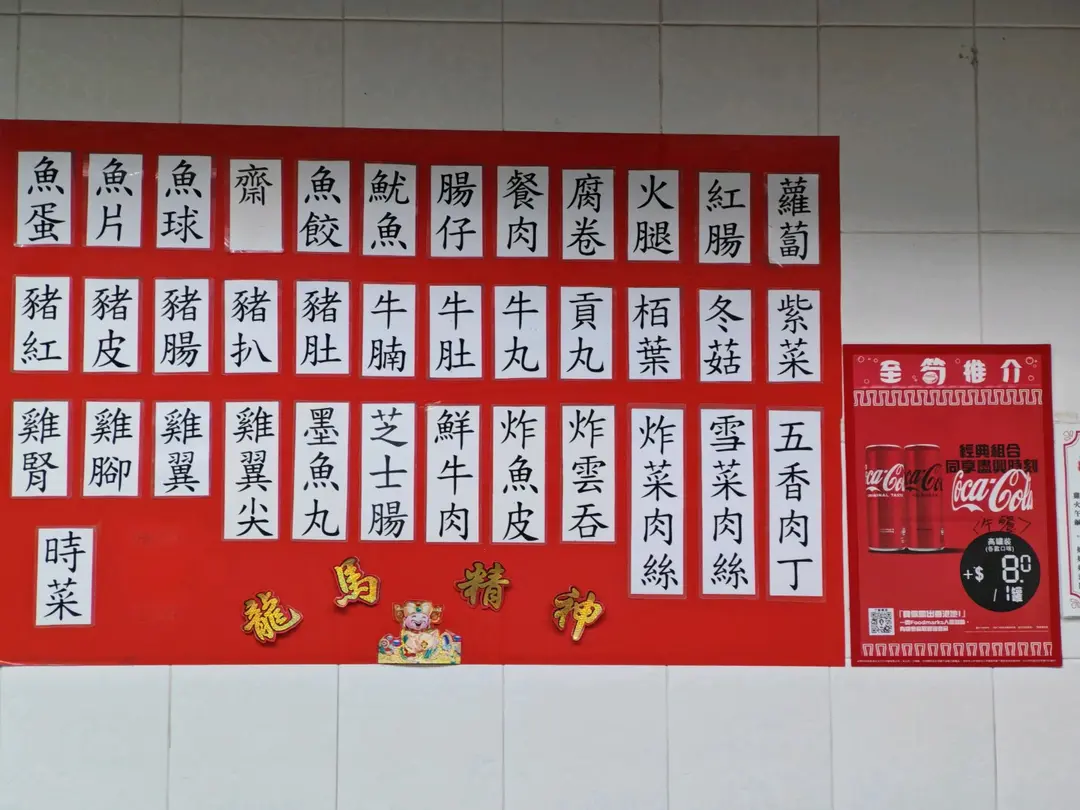 魚蛋
魚片
魚球
齋
魚餃
魷魚
腸仔
餐肉
腐卷
火腿
紅腸
蘿蔔
豬紅
豬皮
豬腸
豬扒
豬肚
牛腩
牛肚
牛丸
貢丸
栢葉
冬菇
紫菜
雞腎
雞腳
雞翼
雞翼尖
墨魚丸
芝士腸
鮮牛肉
炸魚皮
炸雲吞
炸菜肉絲
雪菜肉絲
五香肉丁
時菜
龍馬精神
全筍推介
經典組合
同享盡興時刻
Coca-Cola
午餐
高罐裝
(各款口味)
+$8.0
/1罐